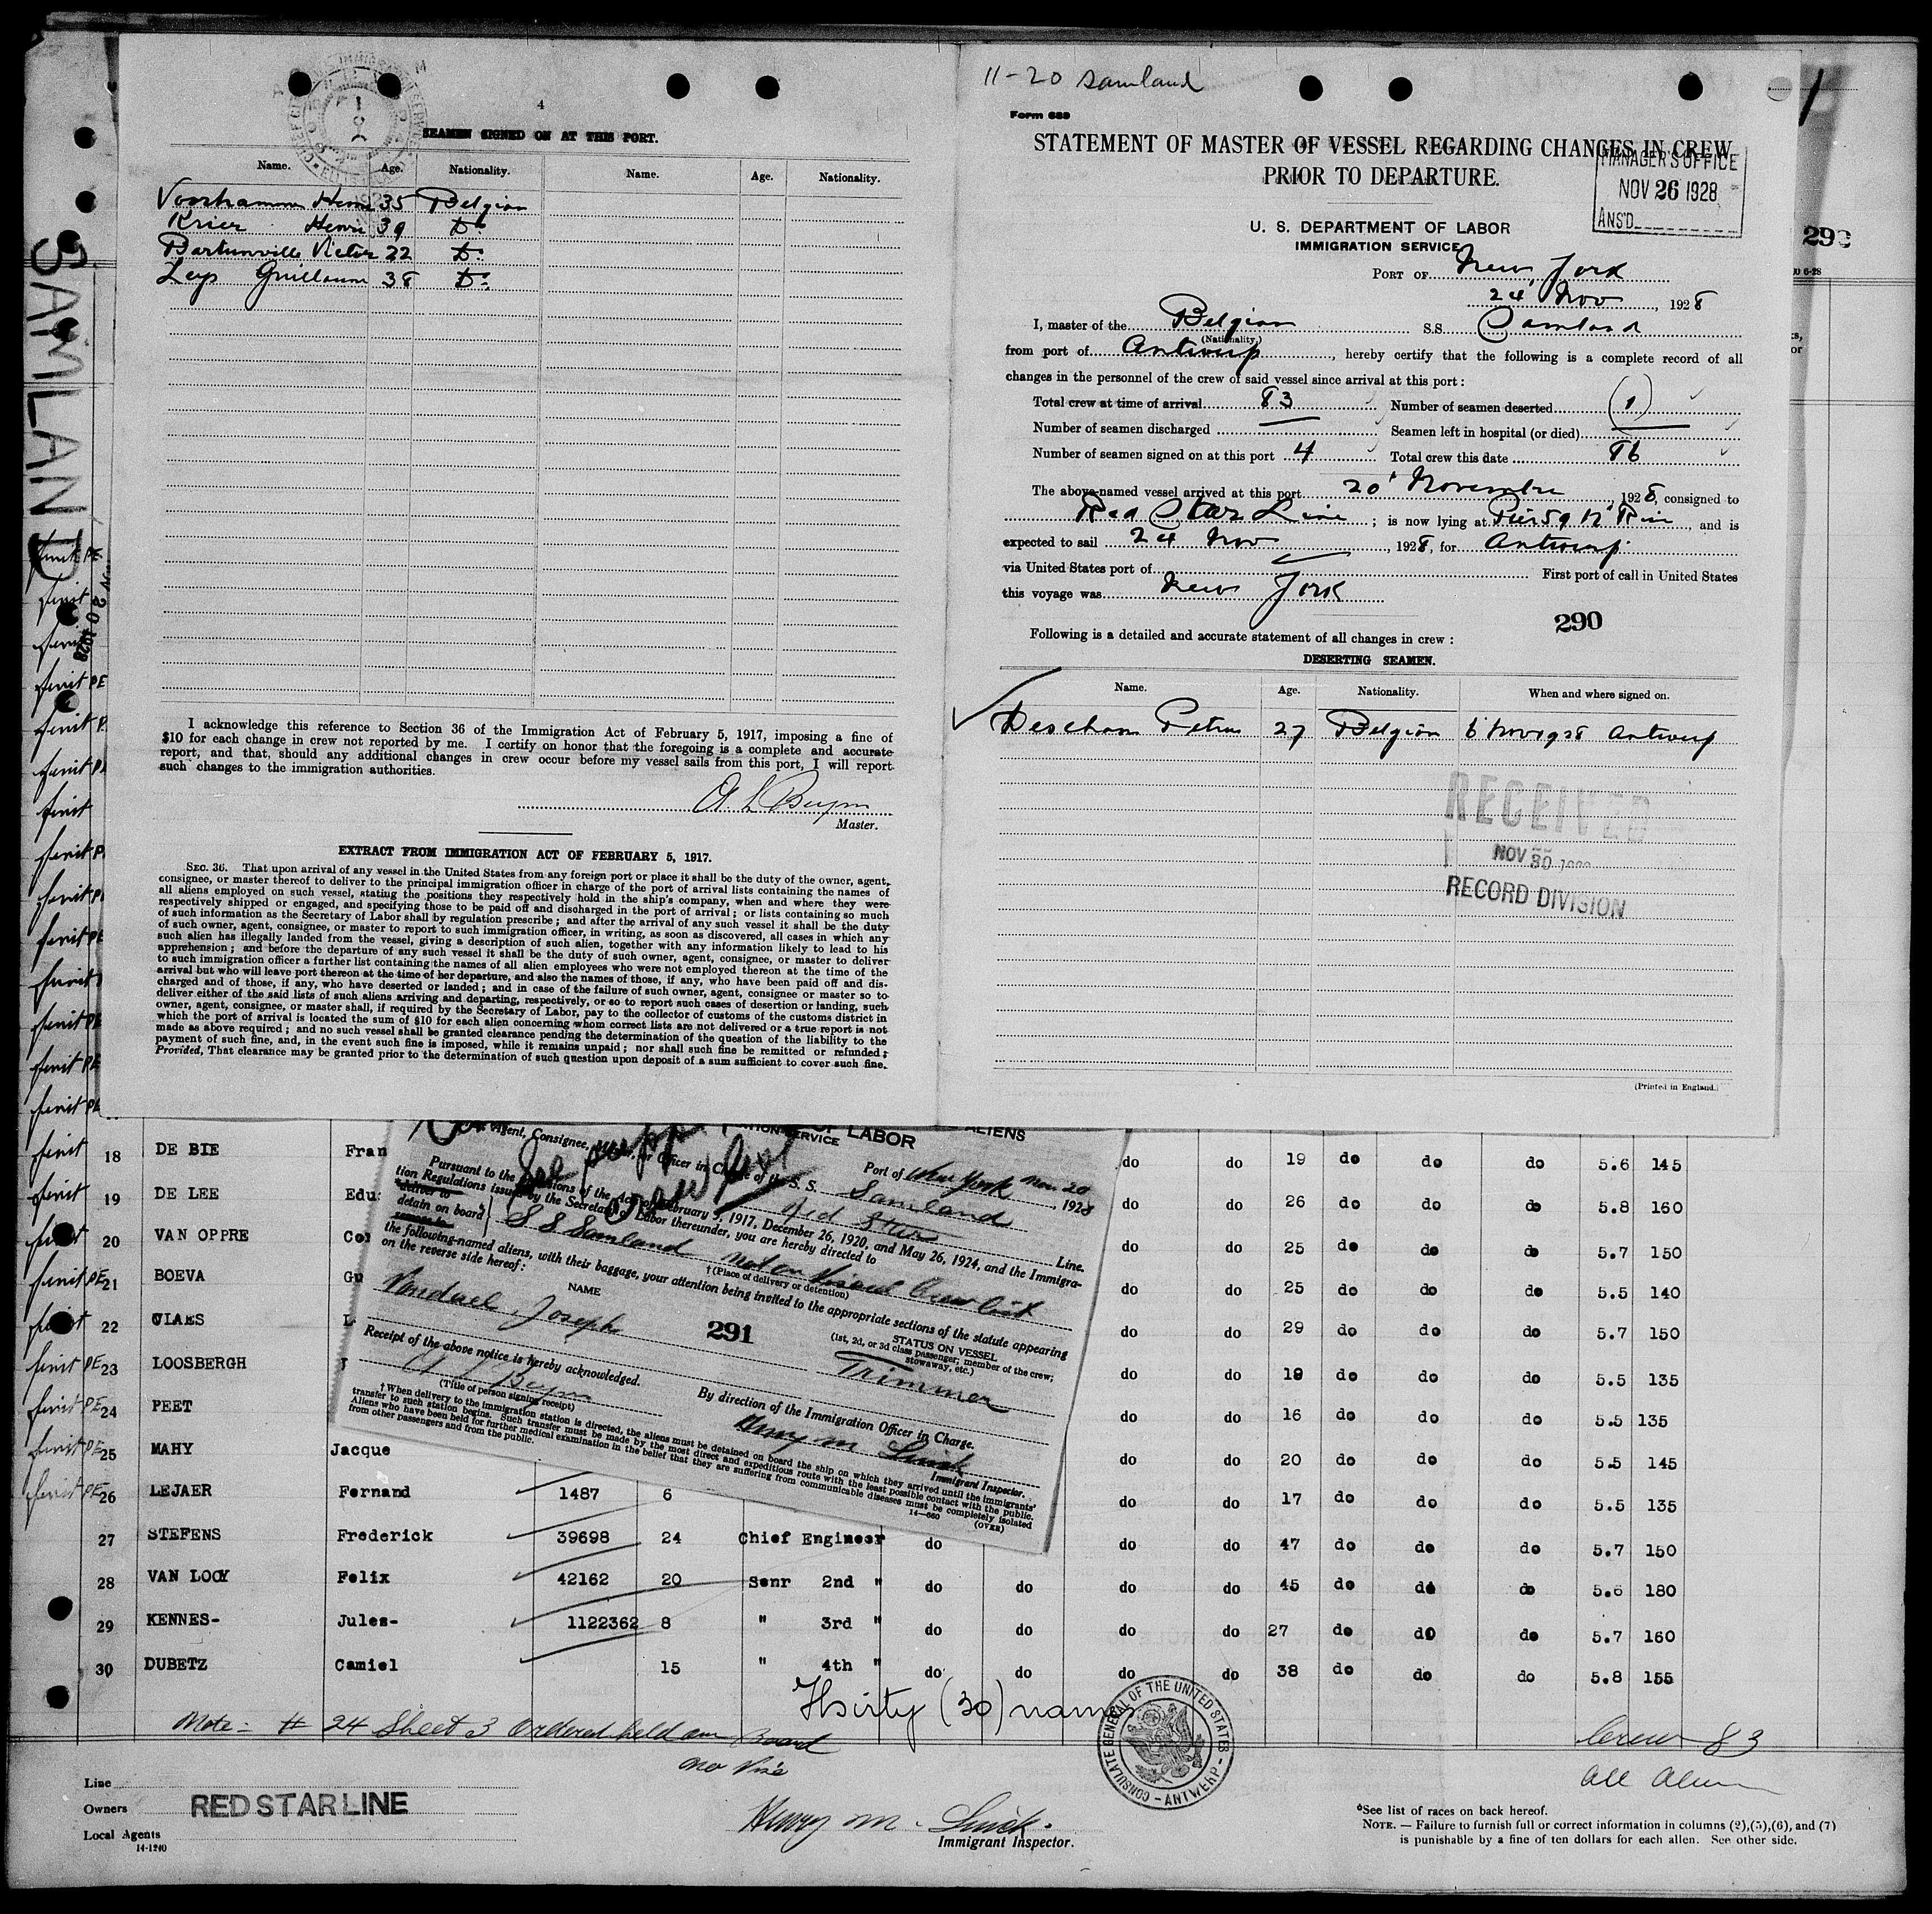 4
SEAMEN SIGNED ON AT THIS PORT.
Name. Age. Nationality. Name. Age. Nationality.
Henri 35 Belgian
Krier Henri 39 Do
Bartunville Victor 22 Do
Leys Guillaume 38 Do
I acknowledge this reference to Section 36 of the Immigration Act of February 5, 1917, imposing a fine of
$10 for each change in crew not reported by me. I certify on honor that the foregoing is a complete and accurate
report, and that, should any additional changes in crew occur before my vessel sails from this port, I will report
such changes to the immigration authorities.
Master.
EXTRACT FROM IMMIGRATION ACT OF FEBRUARY 5, 1917.
SEC. 36. That upon arrival of any vessel in the United States from any foreign port or place it shall be the duty of the owner, agent,
consignee, or master thereof to deliver to the principal immigration officer in charge of the port of arrival lists containing the names of
all aliens employed on such vessel, stating the positions they respectively hold in the ship's company, when and where they were
respectively shipped or engaged, and specifying those to be paid off and discharged in the port of arrival; or lists containing so much
of such information as the Secretary of Labor shall by regulation prescribe; and after the arrival of any such vessel it shall be the duty
of such owner, agent, consignee, or master to report to such immigration officer, in writing, as soon as discovered, all cases in which any
such alien has illegally landed from the vessel, giving a description of such alien, together with any information likely to lead to his
apprehension; and before the departure of any such vessel it shall be the duty of such owner, agent, consignee, or master to deliver
to such immigration officer a further list containing the names of all alien employees who were not employed thereon at the time of the
arrival but who will leave port thereon at the time of her departure, and also the names of those, if any, who have been paid off and dis-
charged and of those, if any, who have deserted or landed; and in case of the failure of such owner, agent, consignee or master so to
deliver either of the said lists of such aliens arriving and departing, respectively, or so to report such cases of desertion or landing, such
owner, agent, consignee, or master shall, if required by the Secretary of Labor, pay to the collector of customs of the customs district in
which the port of arrival is located the sum of $10 for each alien concerning whom correct lists are not delivered or a true report is not
made as above required; and no such vessel shall be granted clearance pending the determination of the question of the liability to the
payment of such fine, and, in the event such fine is imposed, while it remains unpaid; nor shall such fine be remitted or refunded:
Provided, That clearance may be granted prior to the determination of such question upon deposit of a sum sufficient to cover such fine.
11-20 Samland
Form 689
STATEMENT OF MASTER OF VESSEL REGARDING CHANGES IN CREW
PRIOR TO DEPARTURE.
MANAGER'S OFFICE
NOV 26 1928
ANS'D
U. S. DEPARTMENT OF LABOR
IMMIGRATION SERVICE
PORT OF New York
24 Nov, 1928
I, master of the Belgian S.S. Samland
(Nationality.)
from port of Antwerp, hereby certify that the following is a complete record of all
changes in the personnel of the crew of said vessel since arrival at this port:
Total crew at time of arrival 83 Number of seamen deserted (1)
Number of seamen discharged — Seamen left in hospital (or died) —
Number of seamen signed on at this port 4 Total crew this date 86
The above-named vessel arrived at this port 20' Novembre, 1928, consigned to
Red Star Line; is now lying at Pier 59, and is
expected to sail 24 Nov, 1928, for Antwerp
via United States port of First port of call in United States
this voyage was New York
290
Following is a detailed and accurate statement of all changes in crew:
DESERTING SEAMEN.
Name. Age. Nationality. When and where signed on.
Petrus 27 Belgian 6 Nov 1928 Antwerp
RECEIVED
NOV 30
RECORD DIVISION
(Printed in England.)
290
SAMLAND
NOV 20 1928
OF LABOR
ALIENS
Agent, Consignee, Master, or Officer in Charge of the S.S. Samland
Port of New York Nov. 20, 1928
Red Star Line.
Pursuant to the provisions of the Act of February 5, 1917, December 26, 1920, and May 26, 1924, and the Immigra-
tion Regulations issued by the Secretary of Labor thereunder, you are hereby directed to
deliver to
detain on board S S Samland Not on Visaed Crew List
†(Place of delivery or detention)
the following-named aliens, with their baggage, your attention being invited to the appropriate sections of the statute appearing
on the reverse side hereof:
NAME
STATUS ON VESSEL
(1st, 2d, or 3d class passenger, member of the crew,
stowaway, etc.)
Joseph
291
Trimmer
Receipt of the above notice is hereby acknowledged.
(Title of person signing receipt)
By direction of the Immigration Officer in Charge.
Henry M
Immigrant Inspector.
†When delivery to the immigration station is directed, the aliens must be detained on board the ship on which they arrived until the immigrants'
transfer to such station begins. Such transfer must be made by the most direct and expeditious route with the least possible contact with the public.
Aliens who have been held for further medical examination in the belief that they are suffering from communicable diseases must be completely isolated
from other passengers and from the public.
14—660 (OVER)
18 DE BIE Fran do do 19 do do do 5.6 145
19 DE LEE Edu do do 26 do do do 5.8 160
20 VAN OPPRE Co do do 25 do do do 5.7 150
21 BOEVA Gu do do 25 do do do 5.5 140
22 CLAES L do do 29 do do do 5.7 150
23 LOOSBERGH do do 19 do do do 5.5 135
24 PEET do do 16 do do do 5.5 135
25 MAHY Jacque do do 20 do do do 5.5 145
26 LEJAER Fernand 1487 6 do do 17 do do do 5.5 135
27 STEFENS Frederick 39698 24 Chief Engineer do do do 47 do do do 5.7 150
28 VAN LOOY Felix 42162 20 Senr 2nd " do do do do 45 do do do 5.6 180
29 KENNES- Jules- 1122362 8 " 3rd " do do do do 27 do do do 5.7 160
30 DUBETZ Camiel 15 " 4th " do do do do 38 do do do 5.8 155
Thirty (30) names
Note:- # 24 Sheet 3 Ordered held on Board
no visé
CONSULATE GENERAL OF THE UNITED STATES - ANTWERP -
Crew 83
All
Line
Owners RED STAR LINE
Local Agents
14-1240
Henry M.
Immigrant Inspector.
*See list of races on back hereof.
NOTE. — Failure to furnish full or correct information in columns (2),(5),(6), and (7)
is punishable by a fine of ten dollars for each alien. See other side.